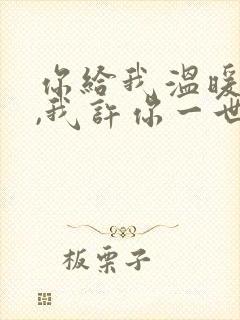 你給我溫暖
,我許你一世
板栗子